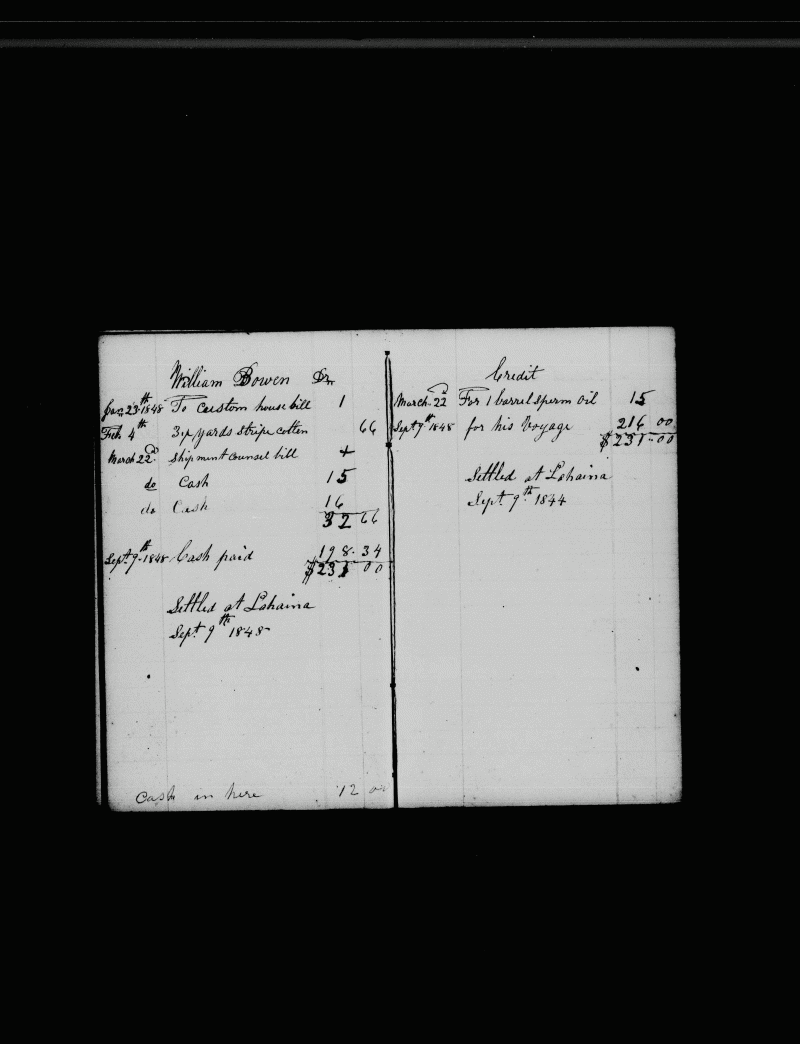 William Bowen Dr
Jan 23th 1848 To Custom house bill 1
Feb 4th 3 yards stripe cotten 66
March 22d shipment counsel bill +
do Cash 15
do Cash 16
32 66
Sept 9th 1848 Cash paid 198.34
$231 00
Settled at Lahaina
Sept 9th 1848
Cash in here 12 00
Credit
March 22d For 1 barrel sperm oil 15
Sept 9th 1848 for his Voyage 216 00
$231-00
Settled at Lahaina
Sept 9th 1844